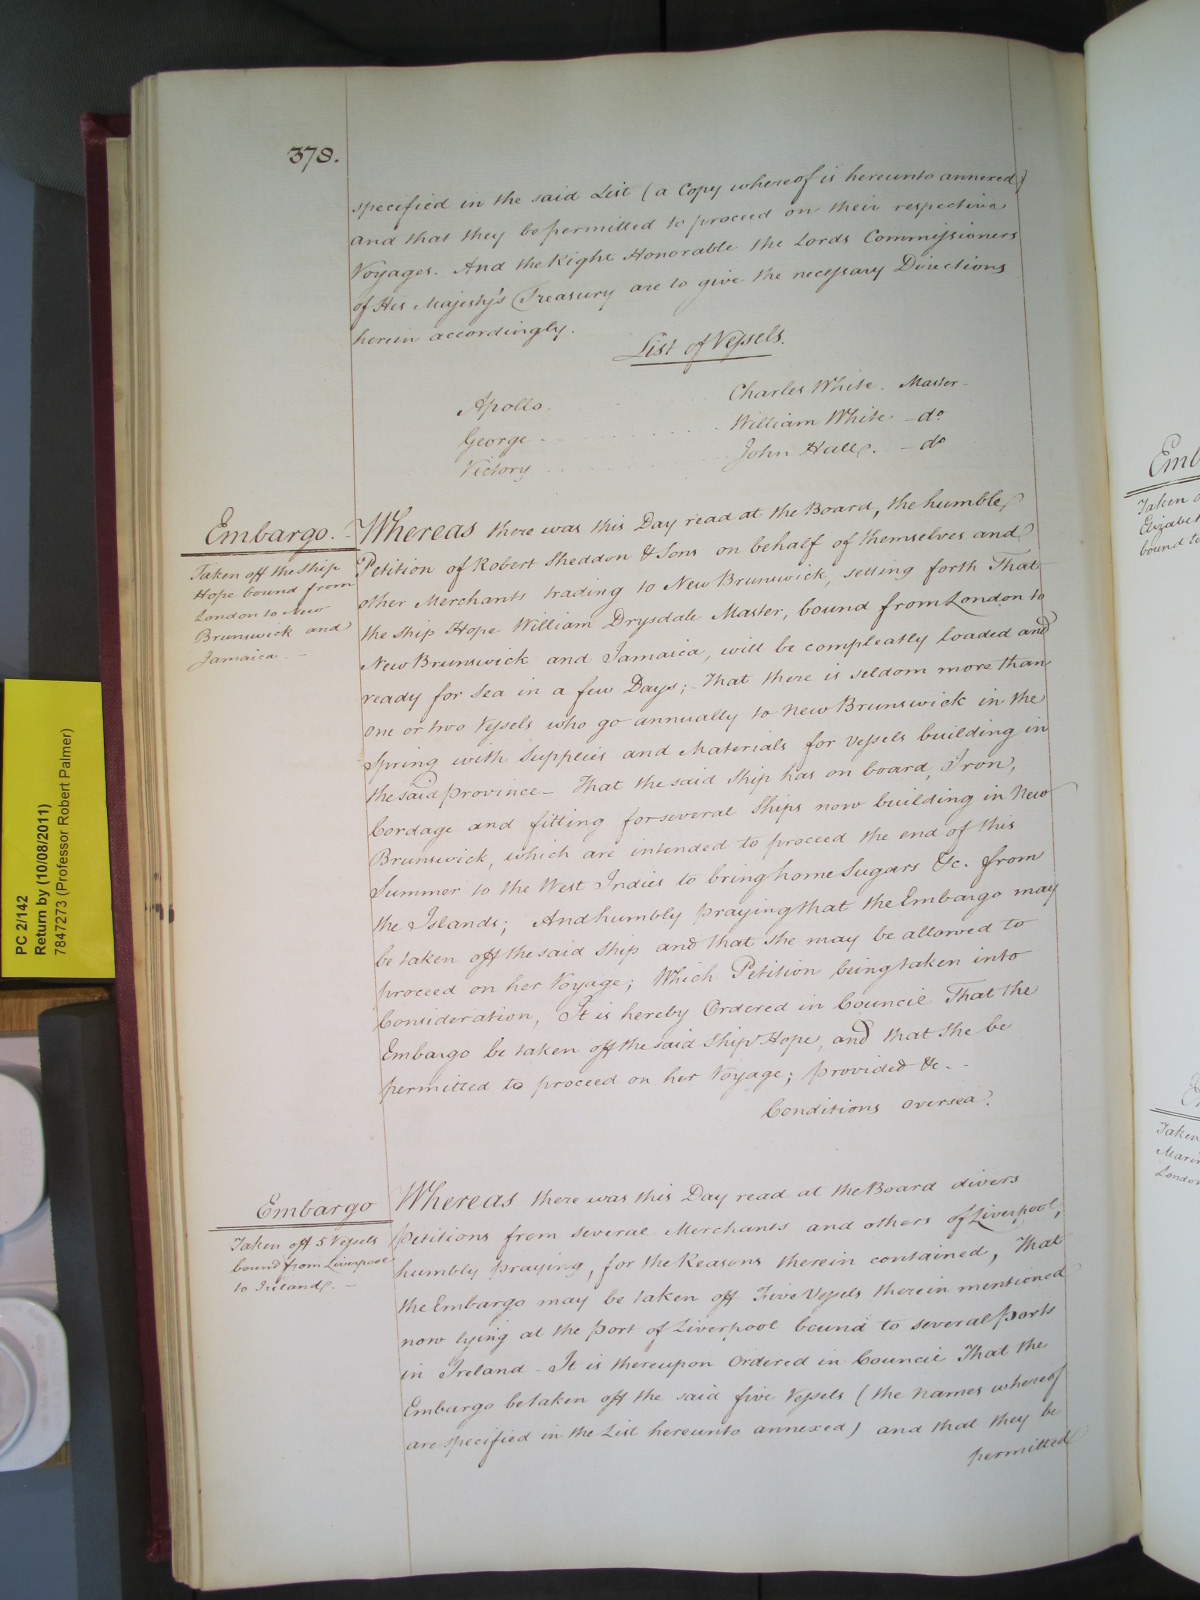 378.
specified in the said List (a Copy whereof is hereunto annexed)
and that they be permitted to proceed on their respective
Voyages. And the Right Honorable the Lords Commissioners
of His Majesty's Treasury are to give the necessary Directions
herein accordingly.
List of Vessels.
Apollo. Charles White. Master.
George - William White - do
Victory John Hall. - do
Embargo.
Taken off the Ship
Hope bound from
London to New
Brunswick and
Jamaica. -
Whereas there was this Day read at the Board, the humble
Petition of Robert Sheddon & Sons on behalf of themselves and
other Merchants trading to New Brunswick, setting forth That
the Ship Hope William Drysdale Master, bound from London to
New Brunswick and Jamaica, will be compleatly loaded and
ready for Sea in a few Days; That there is seldom more than
one or two Vessels who go annually to New Brunswick in the
Spring with Supplies and Materials for Vessels building in
the said Province - That the said Ship has on board, Iron,
Cordage and fitting for several Ships now building in New
Brunswick, which are intended to proceed the end of this
Summer to the West Indies to bring home Sugars &c. from
the Islands; And humbly praying that the Embargo may
be taken off the said Ship and that She may be allowed to
proceed on her Voyage; Which Petition being taken into
Consideration, It is hereby Ordered in Council That the
Embargo be taken off the said Ship Hope, and that She be
permitted to proceed on her Voyage; provided &c. -
Conditions oversea.
Embargo
Taken off 5 Vessels
bound from Liverpool
to Ireland. -
Whereas there was this Day read at the Board divers
Petitions from several Merchants and others of Liverpool,
humbly praying, for the Reasons therein contained, That
the Embargo may be taken off Five Vessels therein mentioned
now lying at the Port of Liverpool bound to several Ports
in Ireland - It is thereupon Ordered in Council That the
Embargo be taken off the said five Vessels (the Names whereof
are specified in the List hereunto annexed) and that they be
permitted
PC 2/142
Return by (10/08/2011)
7847273 (Professor Robert Palmer)
Emb
Taken
Elizabet
bound to
Taken
Mari
London